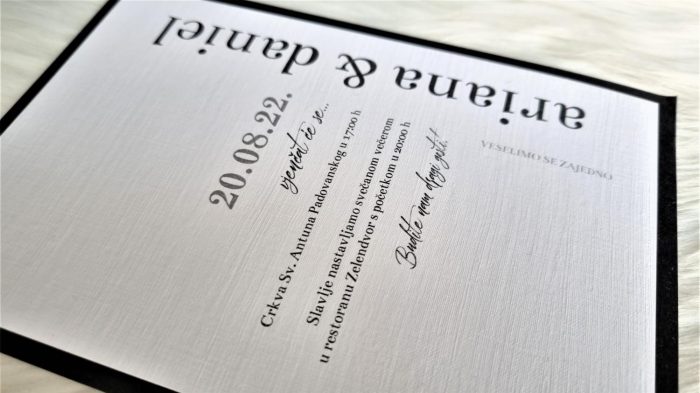 ariana & daniel
20.08.22.
vjenčat će se...
Crkva Sv. Antuna Padovanskog u 17:00 h
Slavlje nastavljamo svečanom večerom
u restoranu Zelendvor s početkom u 20:00 h
Budite nam dragi gosti!
VESELIMO SE ZAJEDNO